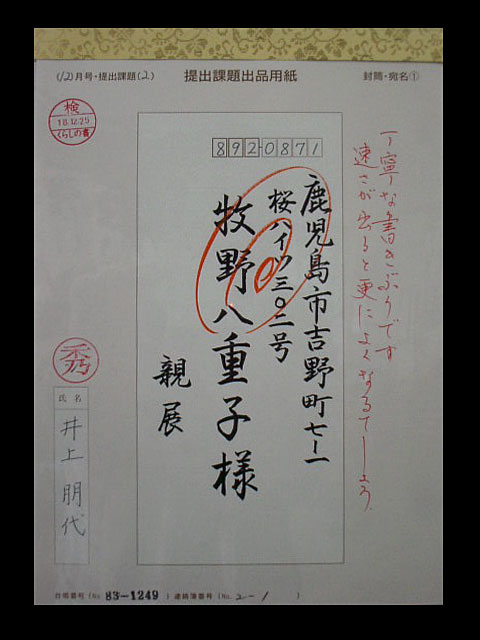 (12)月号・提出課題(2)
提出課題出品用紙
封筒・宛名①
検
18.12.25
くらしの書
8920871
鹿児島市吉野町七ー一
桜ハイツ三〇二号
牧野八重子様
親展
丁寧な書きぶりです
速さが出ると更によくなるでしょう
秀
氏名
井上朋代
会員番号(No. 83-1249 )連絡簿番号(No. 2-1 )